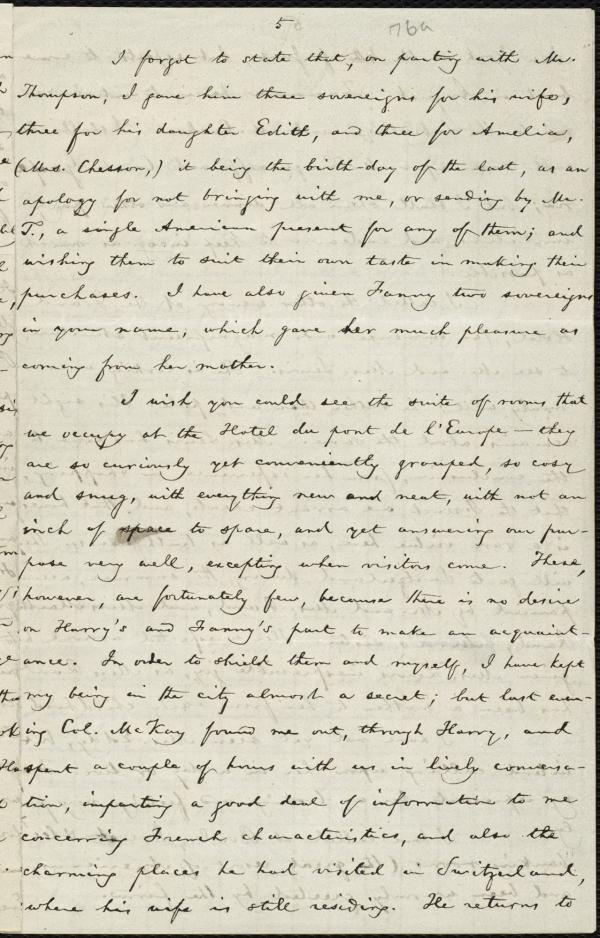 5
76a
I forgot to state that, on parting with Mr.
Thompson, I gave him three sovereigns for his wife,
three for his daughter Edith, and three for Amelia,
(Mrs. Chesson,) it being the birth-day of the last, as an
apology for not bringing with me, or sending by Mr.
T., a single American present for any of them; and
wishing them to suit their own taste in making their
purchases. I have also given Fanny two sovereigns
in your name, which gave her much pleasure as
coming from her mother.
I wish you could see the suite of rooms that
we occupy at the Hotel du pont de l'Europe — they
are so curiously yet conveniently grouped, so cosy
and snug, with everything new and neat, with not an
inch of space to spare, and yet answering our pur-
pose very well, excepting when visitors come. These,
however, are fortunately few, because there is no desire
on Harry's and Fanny's part to make an acquaint-
ance. In order to shield them and myself, I have kept
my being in the city almost a secret; but last even-
ing Col. McKay found me out, through Harry, and
spent a couple of hours with us in lively conversa-
tion, imparting a good deal of information to me
concerning French characteristics, and also the
charming places he had visited in Switzerland,
where his wife is still residing. He returns to